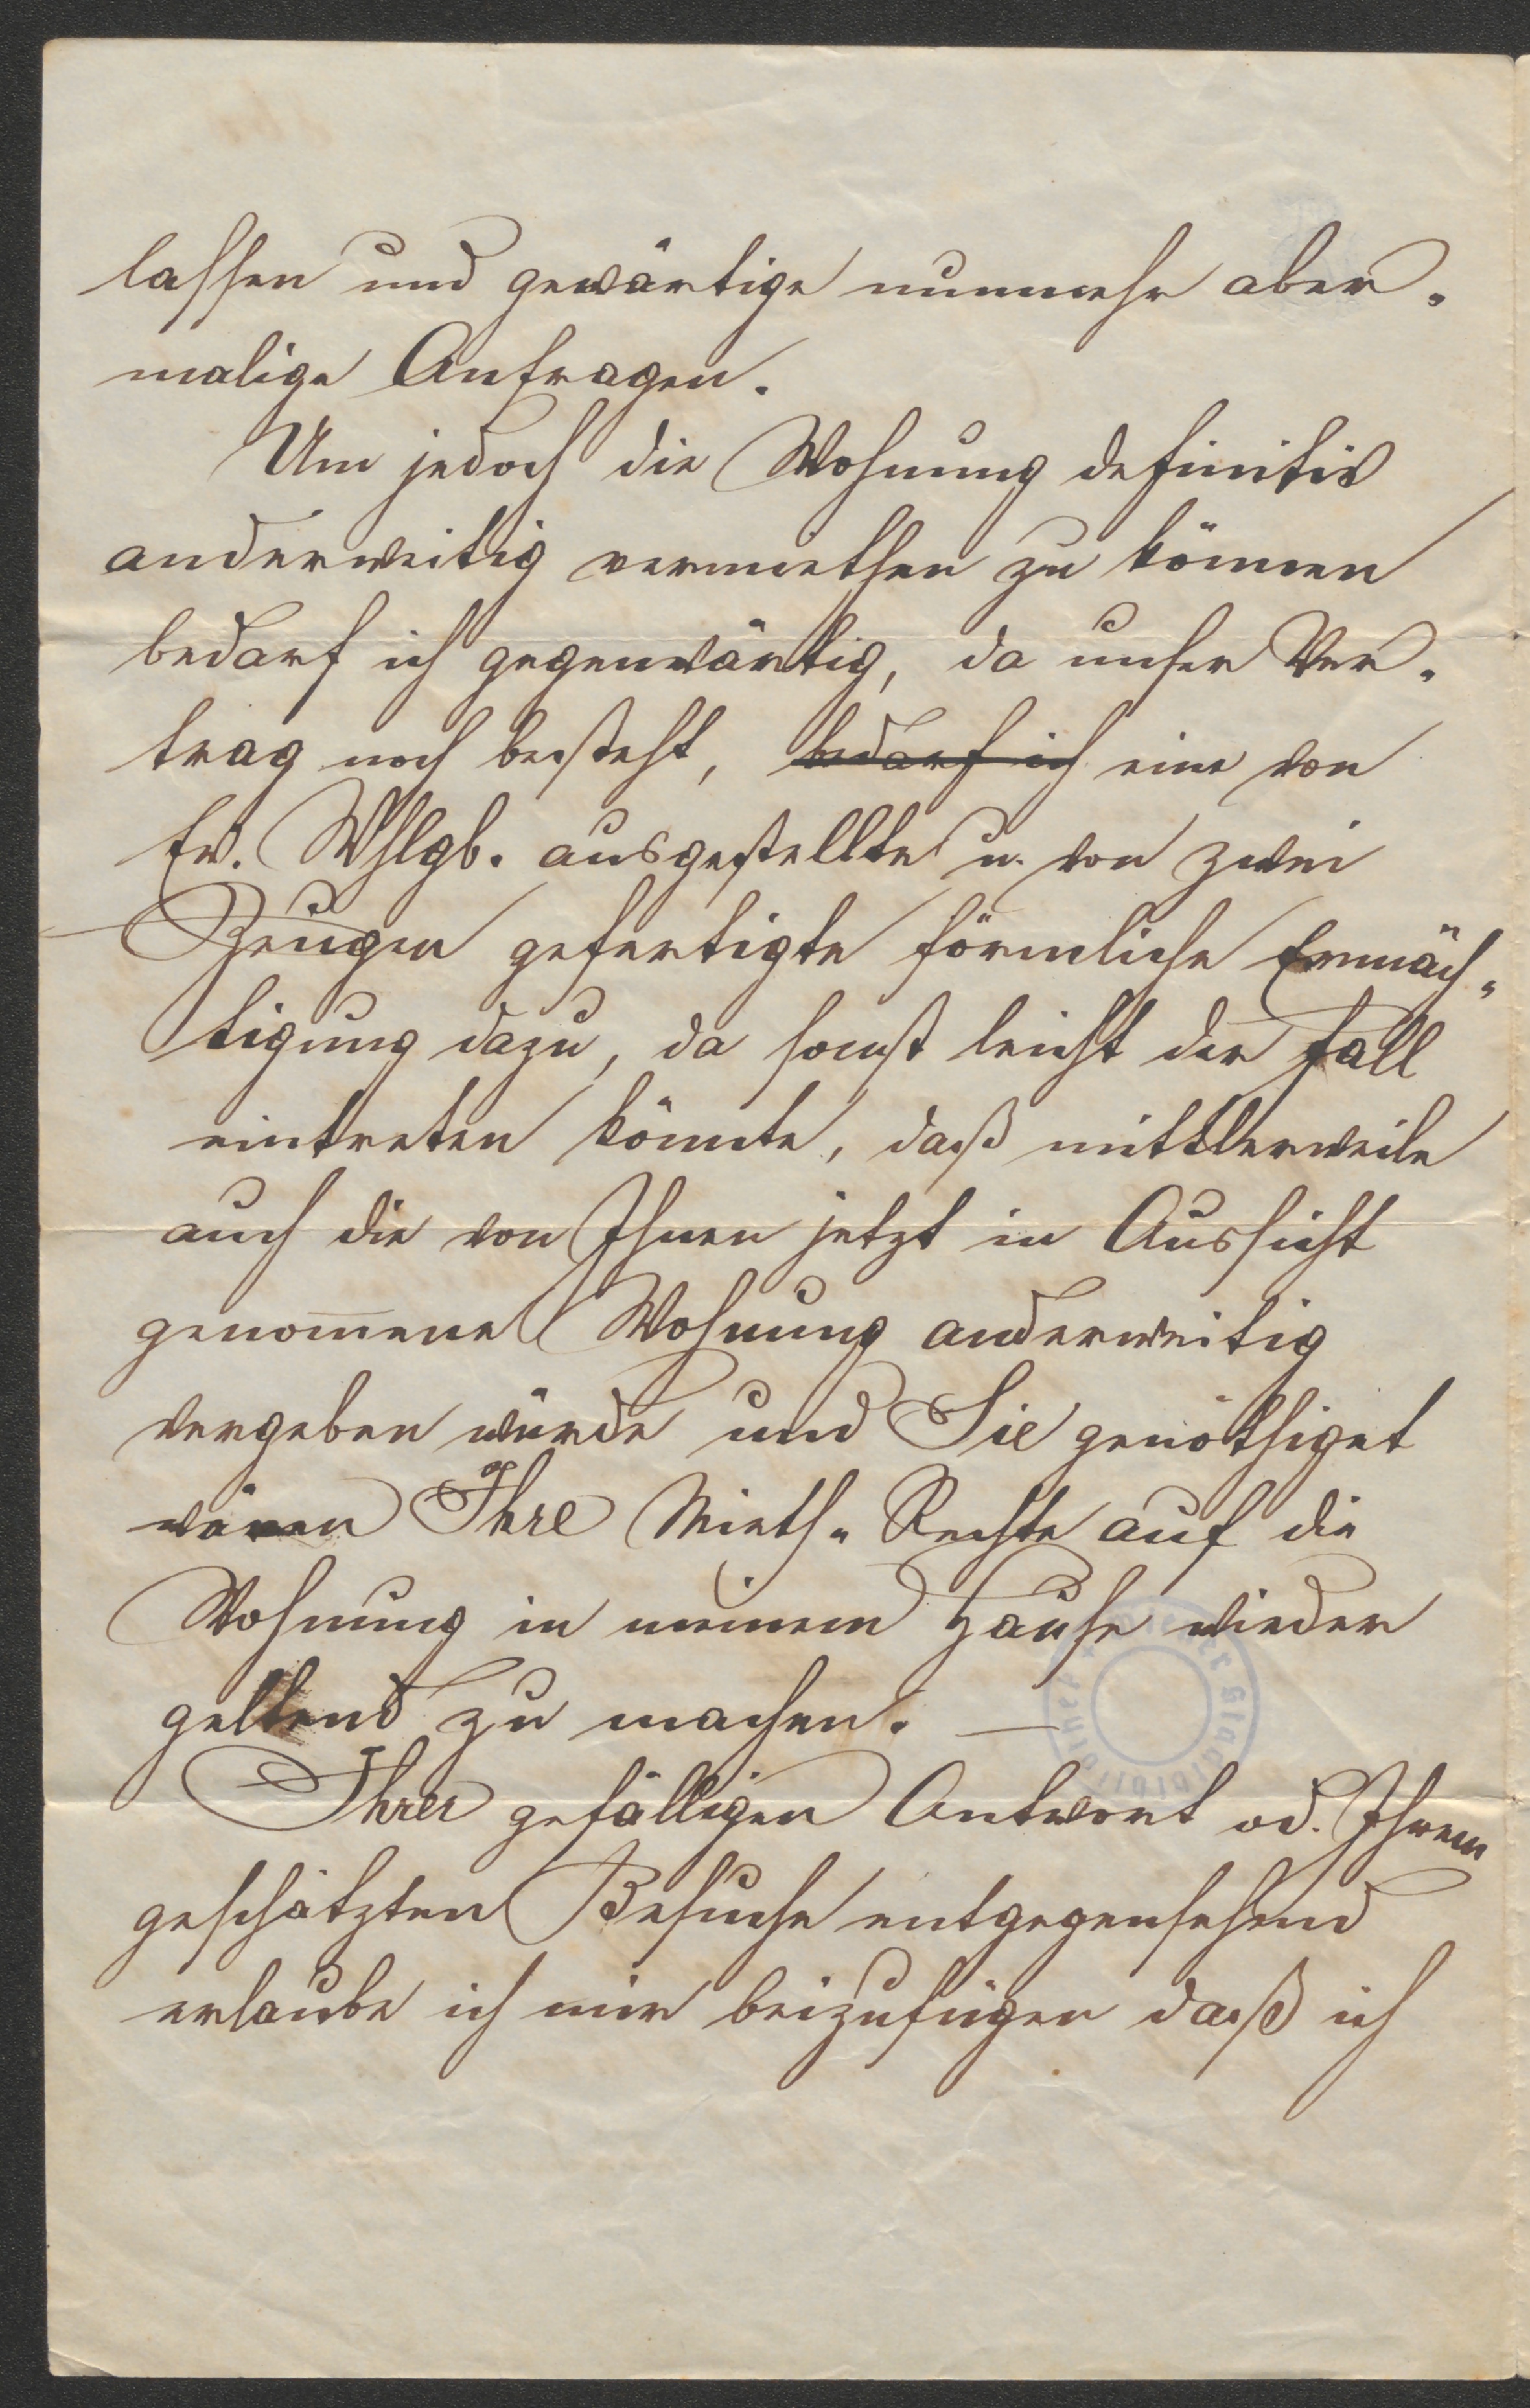 lassen und gewärtige nunmehr aber-
malige Anfragen.
Um jedoch die Wohnung definitiv
anderweitig vermiethen zu können
bedarf ich gegenwärtig, da unser Ver-
trag noch besteht, bedarf ich eine von
Ew. Whlgb. ausgestellte u. von zwei
Zeugen gefertigte förmliche Ermäch-
tigung dazu, da sonst leicht der Fall
eintreten könnte, daß mittlerweile
auch die von Ihnen jetzt in Aussicht
genom̅ene Wohnung anderweitig
vergeben würde und Sie genöthiget
wären Ihre Mieth-Rechte auf die
Wohnung in meinem Hause wieder
geltend zu machen. —
Ihrer gefälligen Antwort od. Ihrem
geschätzten Besuche entgegensehend
erlaube ich mir beizufügen daß ich
Wiener Stadtbibliothek